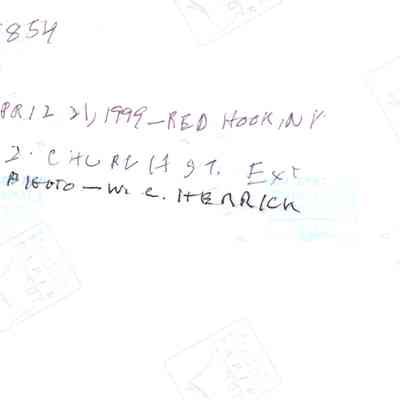 5854
PRIL 21, 1999 - RED HOOK, NY
2. CHURCH ST. Ext
PHOTO - W. C. HERRICK